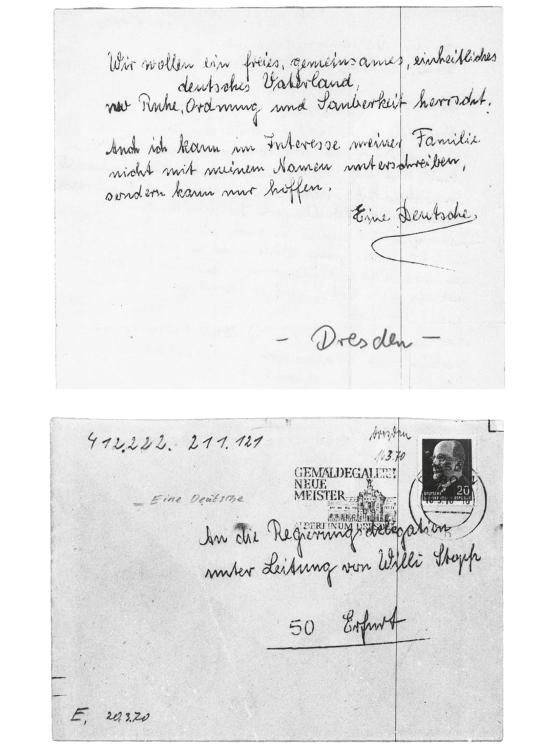 Wir wollen ein freies, gemeinsames, einheitliches
deutsches Vaterland,
wo Ruhe, Ordnung und Sauberkeit herrscht.
Auch ich kann im Interesse meiner Familie
nicht mit meinem Namen unterschreiben,
sondern kann nur hoffen.
Eine Deutsche.
- Dresden -
412.222. 211.121
Dresden
10.3.70
GEMÄLDEGALERIE
NEUE
MEISTER
20
Eine Deutsche
An die Regierungsdelegation
unter Leitung von Willi Stoph
50 Erfurt
E, 20.3.70